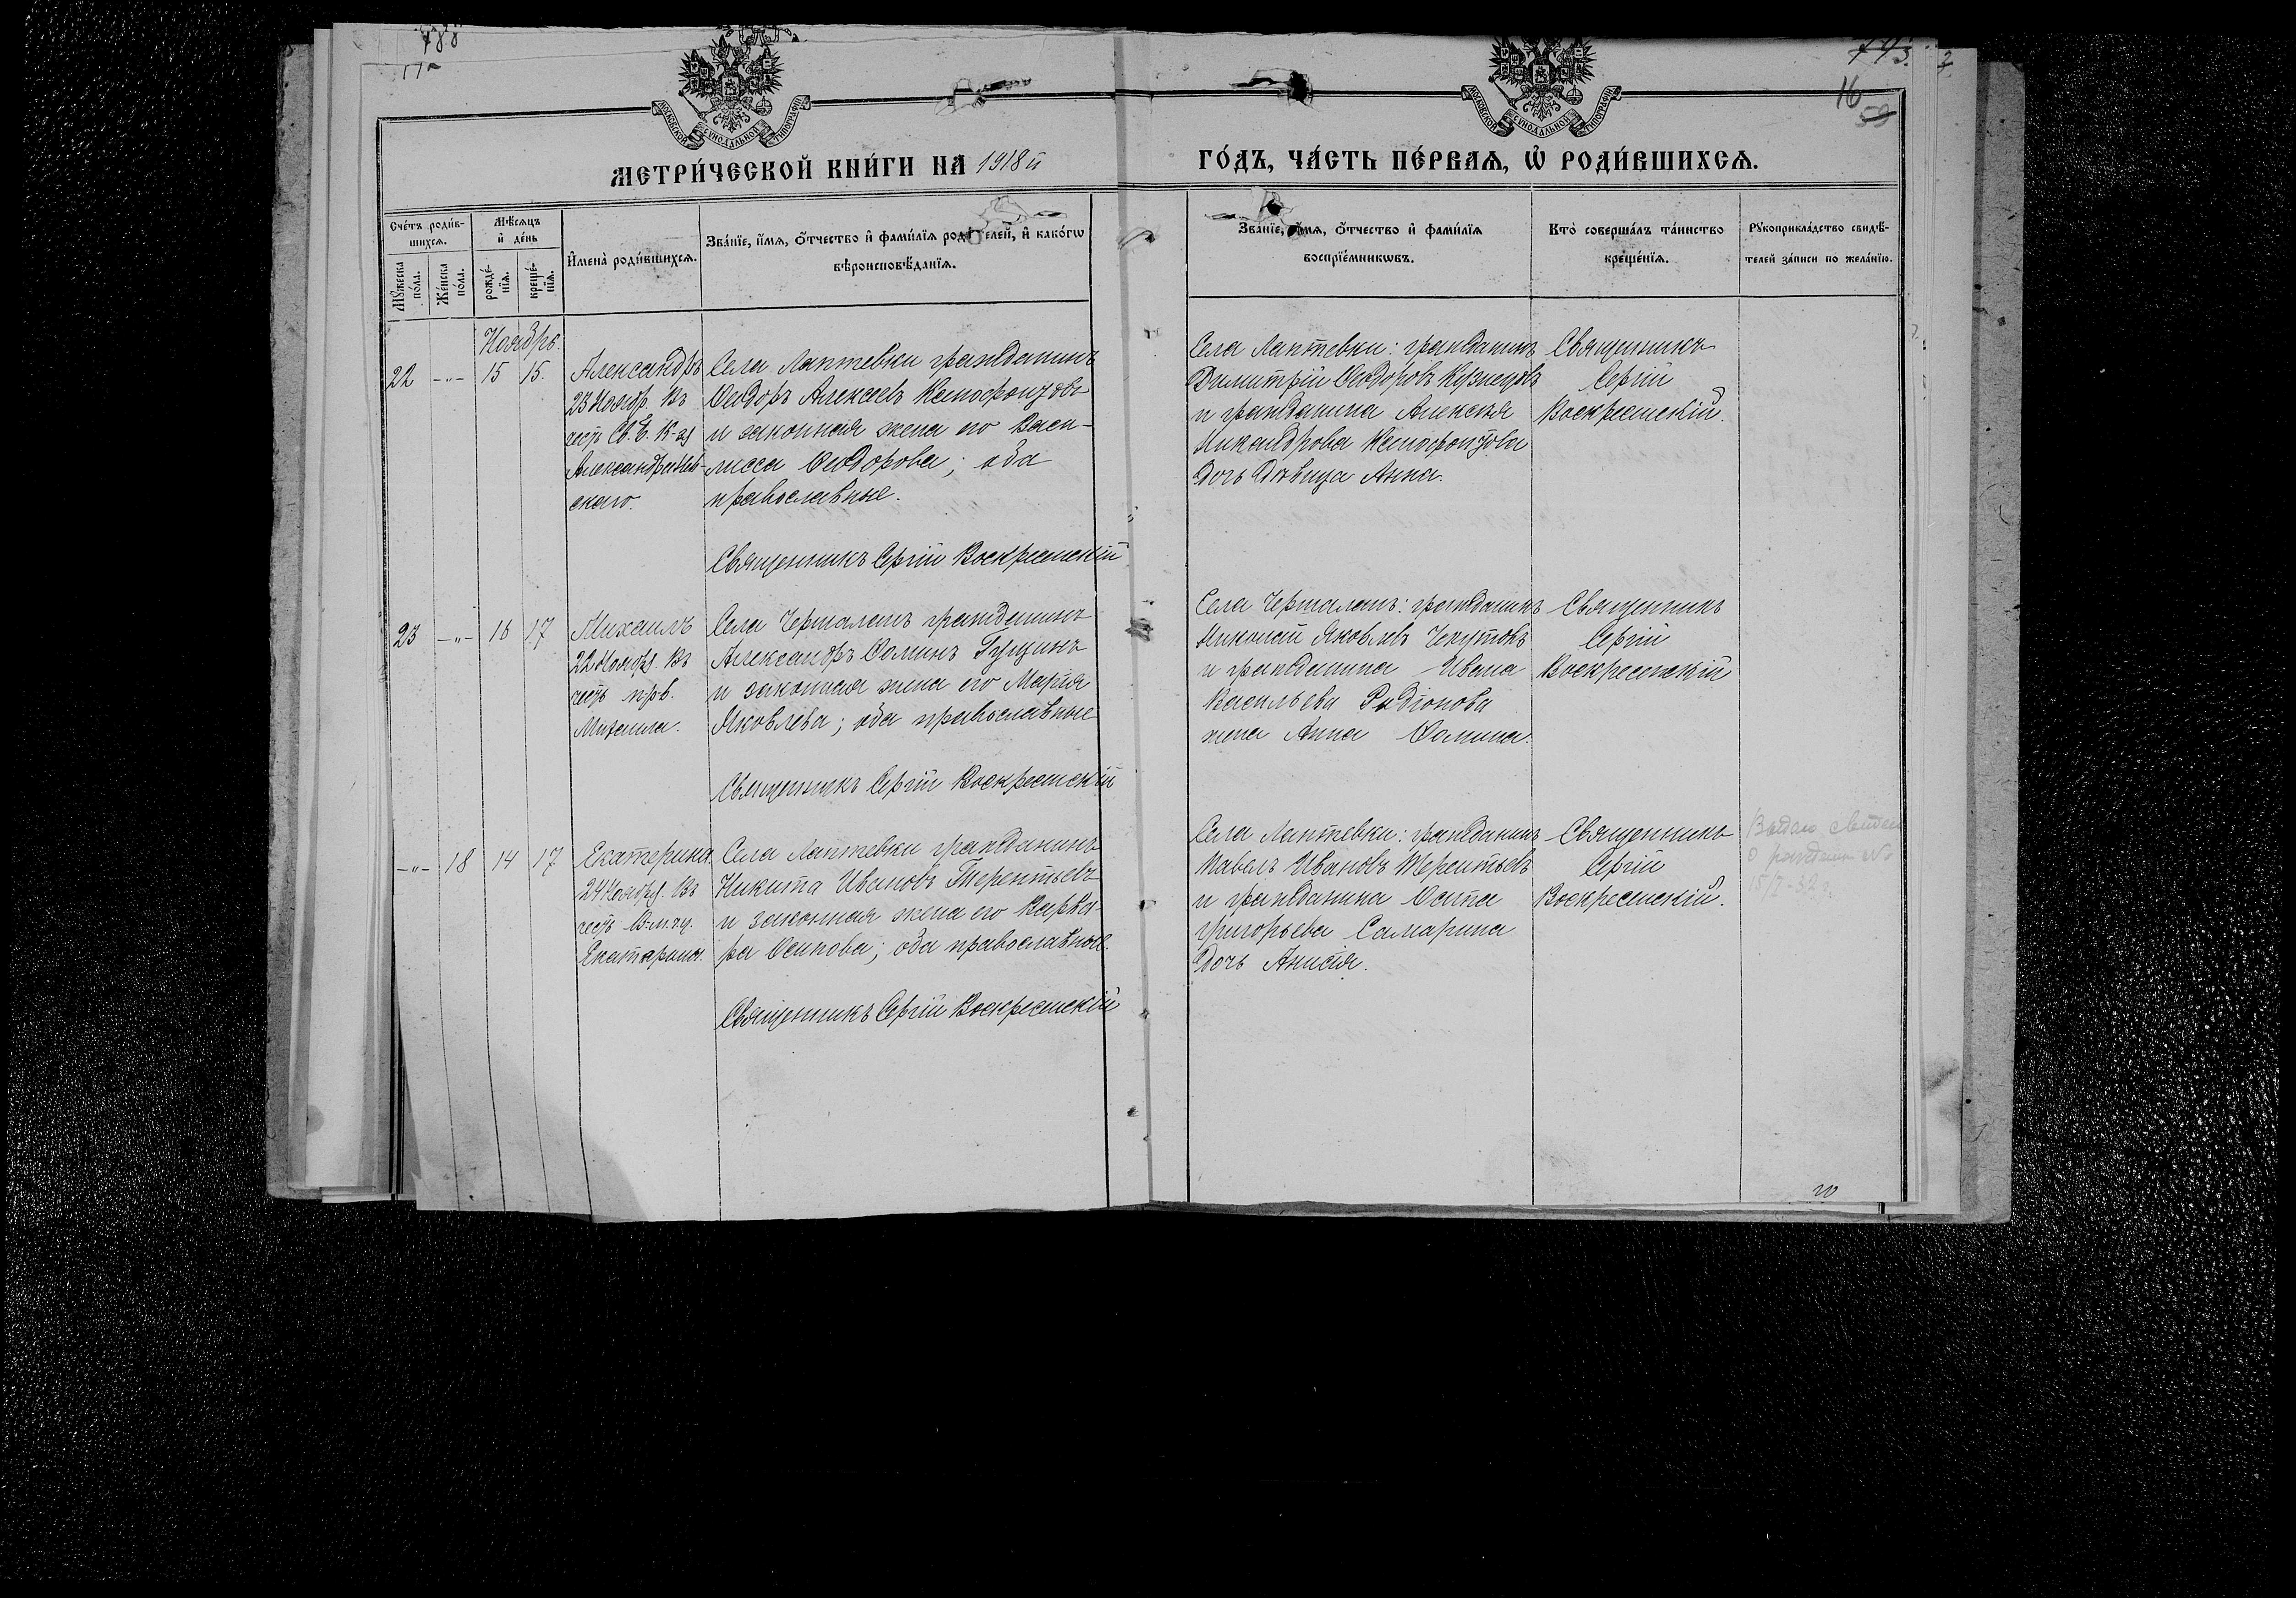 788
793.
16
59
МОСКОВСКОЙ СѴНОДАЛЬНОЙ ТИПОГРАФІИ
МОСКОВСКОЙ СѴНОДАЛЬНОЙ ТИПОГРАФІИ
МЕТРИ́ЧЕСКОЙ КНИ́ГИ НА 1918й
ГО́ДЪ, ЧА́СТЬ ПЕ́РВАЯ, Ѡ҆ РОДИ́ВШИХСЯ.
Сче́тъ роди́в-
шихся.
Мѣ́сяцъ
и҆ де́нь
Мꙋ́жеска
по́ла.
Же́нска
по́ла.
рожде́-
нїя.
креще́-
нїя.
И҆мена̀ роди́вшихся.
Зва́нїе, и҆́мя, ѻ҆́тчество и҆ фами́лїя роди́телей, и҆ како́гѡ
вѣроисповѣ́данїя.
Зва́нїе, и҆́мя, ѻ҆́тчество и҆ фами́лїя
воспрїе́мникѡвъ.
Кто̀ соверша́лъ та́инство
креще́нїя.
Рꙋкоприкла́дство свидѣ́-
телей за́писи по жела́нїю.
Ноябрь.
22 -„- 15 15.
Александръ
23 Ноябр. Въ
честь Св. Б. К-зя
Александра Нев-
скаго.
Села Лаптевки гражданинъ
Ѳеодоръ Алексеевъ Ксенофонтовъ
и законная жена его Васи-
лисса Ѳеодорова; оба
православные.
Священникъ Сергій Воскресенскій
Села Лаптевки: гражданинъ
Димитрій Ѳеодоровъ Кузнецовъ
и гражданина Алексѣя
Никандрова Ксенофонтова
дочь дѣвица Анна.
Священникъ
Сергій
Воскресенскій.
23 -„- 16 17
Михаилъ
22 Ноябр. Въ
честь прв.
Михаила.
Села Чермалатъ гражданинъ
Александръ Ѳоминъ Гущинъ
и законная жена его Марія
Яковлева; оба православные
Священникъ Сергій Воскресенскій
Села Чермалатъ: гражданинъ
Николай Яковлевъ
и гражданина Ивана
Васильева Родіонова
жена Анна Ѳомина.
Священникъ
Сергій
Воскресенскій
-„- 18 14 17
Екатерина
24 Ноябр. Въ
честь В-м-чц.
Екатерины.
Села Лаптевки гражданинъ
Никита Ивановъ Терентьевъ
и законная жена его Варва-
ра Осипова; оба православные.
Священникъ Сергій Воскресенскій
Села Лаптевки: гражданинъ
Павелъ Ивановъ Терентьевъ
и гражданина
Григорьева Самарина
дочь Анисія.
Священникъ
Сергій
Воскресенскій.